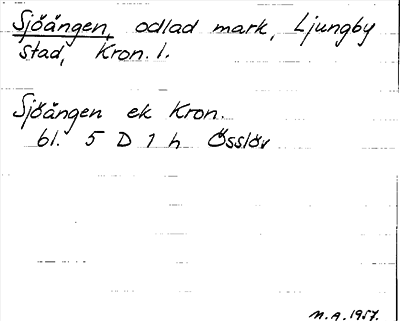 Sjöängen, odlad mark, Ljungby
stad, Kron. l.
Sjöängen ek Kron.
bl. 5 D 1 h Össlöv
M.A. 1957.